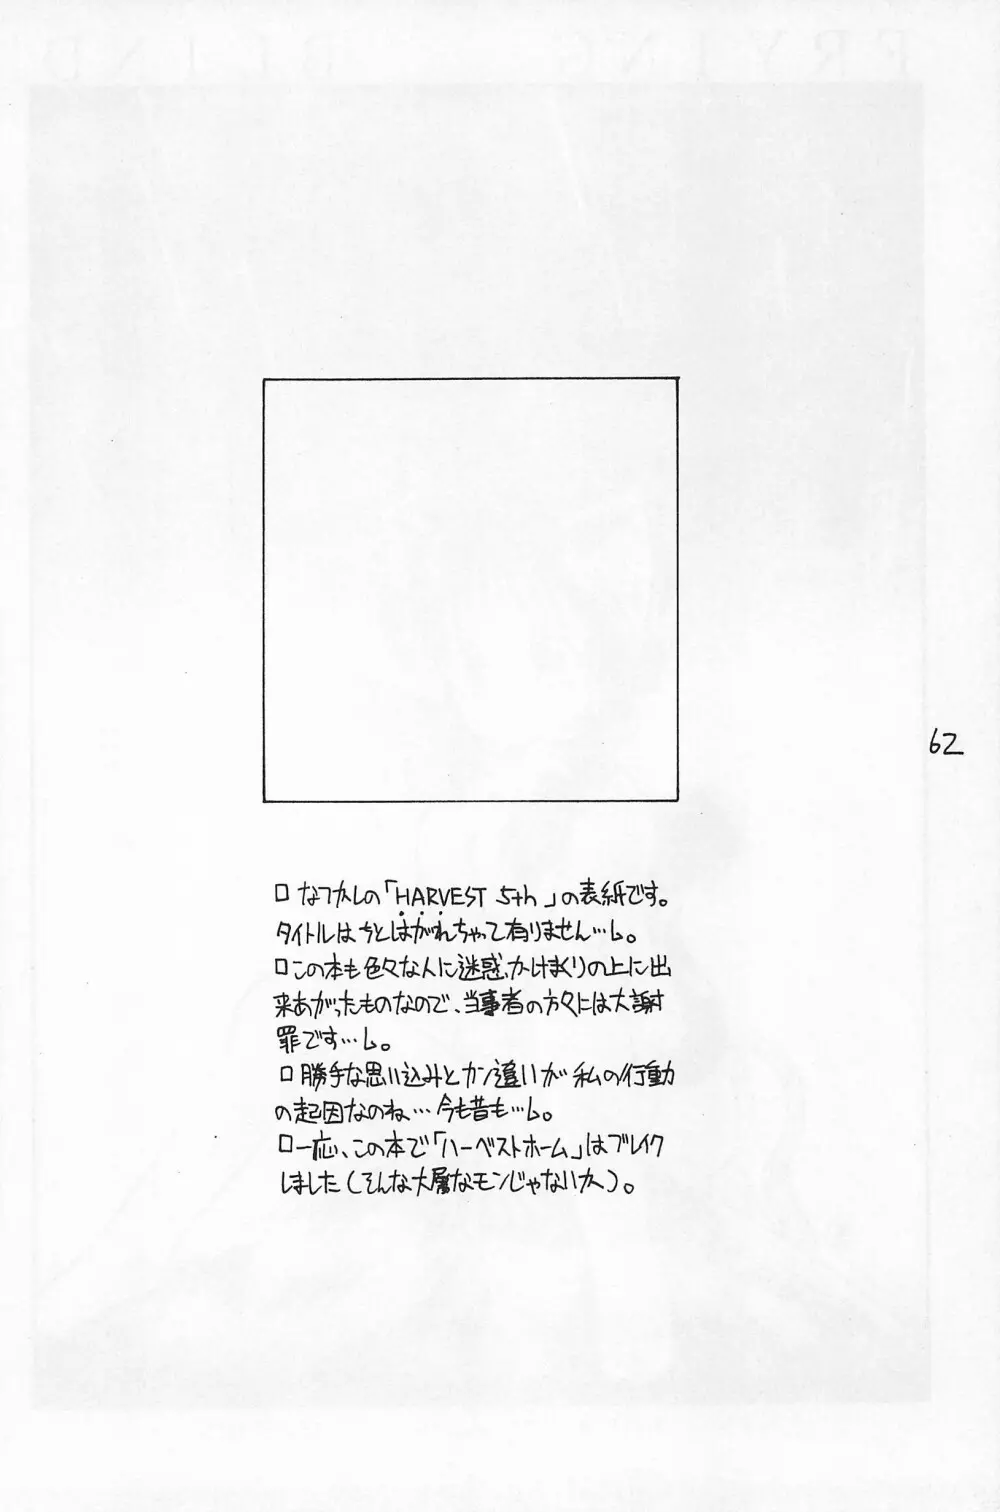 62
□なつかしの「HARVEST 5th」の表紙です。
タイトルはちとはがれちゃって有りません…し。
□この本も色々な人に迷惑かけまくりの上に出
来あがったものなので、当事者の方々には大謝
罪です…し。
□勝手な思い込みとカン違いが私の行動
の起因なのね…今も昔も…し。
□一応、この本で「ハーベストホーム」はブレイク
しました(そんな大層なモンじゃないか)。